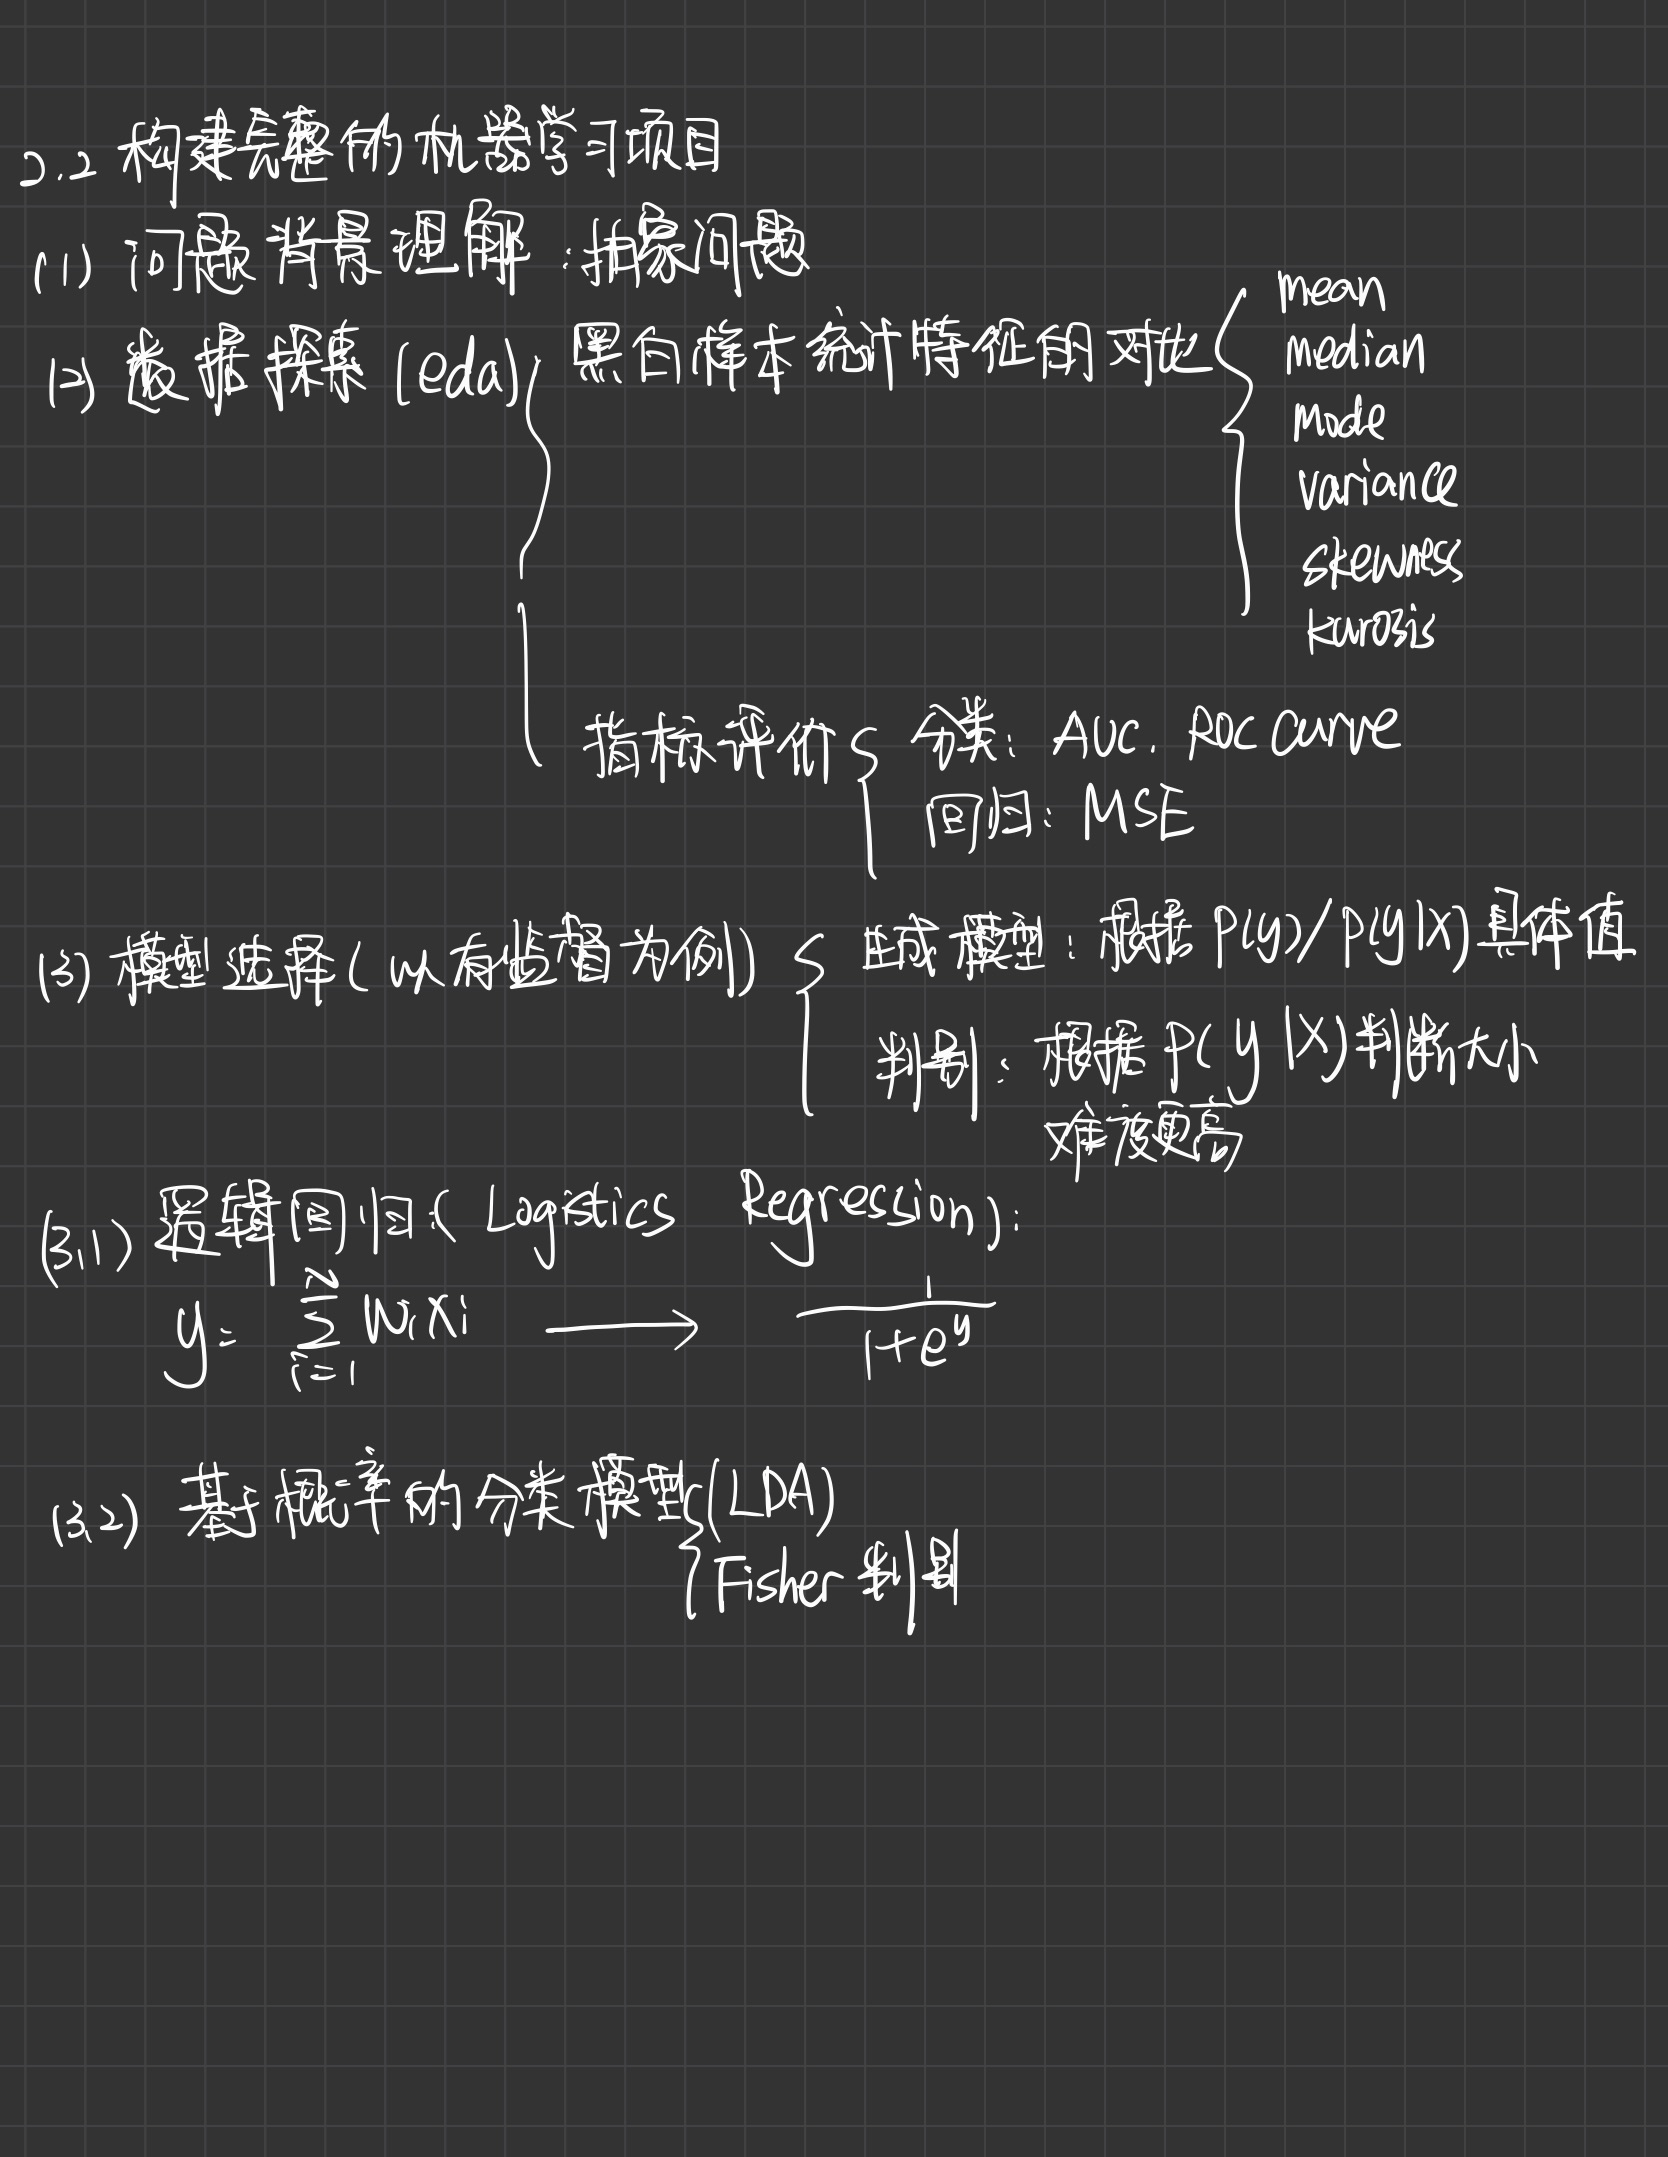 2.2 构建完整的机器学习项目
(1) 问题背景理解：抽象问题
(2) 数据探索 (eda) 黑白样本统计特征的对比
mean
median
mode
variance
skewness
kurosis
指标评价
分类: AUC. ROC Curve
回归: MSE
(3) 模型选择(以有监督为例)
生成模型: 根据 P(y)/P(y|X) 具体值
判别: 根据 P(y|X)判断大小
难度更高
(3.1) 逻辑回归:( Logistics Regression):
y= \sum_{i=1}^{N} WiXi ⟶ \frac{1}{1+e^y}
(3.2) 基于概率的分类模型 (LDA)
Fisher 判别